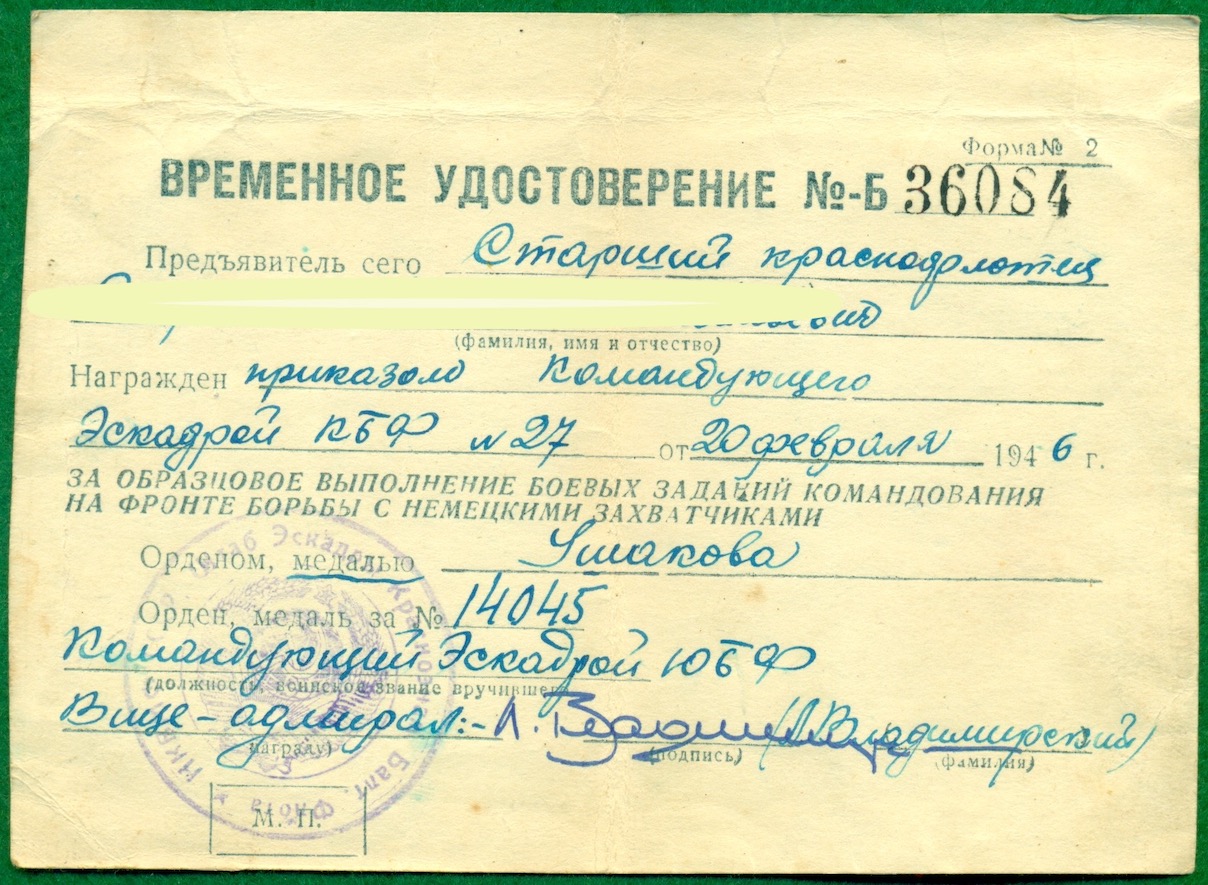 Форма № 2
ВРЕМЕННОЕ УДОСТОВЕРЕНИЕ №-Б 36084
Предъявитель сего Старший краснофлотец
(фамилия, имя и отчество)
Награжден приказом Командующего
Эскадрой КБФ №27 от 20 февраля 1946 г.
ЗА ОБРАЗЦОВОЕ ВЫПОЛНЕНИЕ БОЕВЫХ ЗАДАНИЙ КОМАНДОВАНИЯ
НА ФРОНТЕ БОРЬБЫ С НЕМЕЦКИМИ ЗАХВАТЧИКАМИ
Орденом, медалью Ушакова
Орден, медаль за № 14045
Командующий Эскадрой ЮБФ
(должность, воинское звание вручившего
Вице-адмирал:- Л. (Л. Владимирский)
награду) (подпись) (фамилия)
М. П.
Штаб Эскадры Краснозн. Балт. Флота